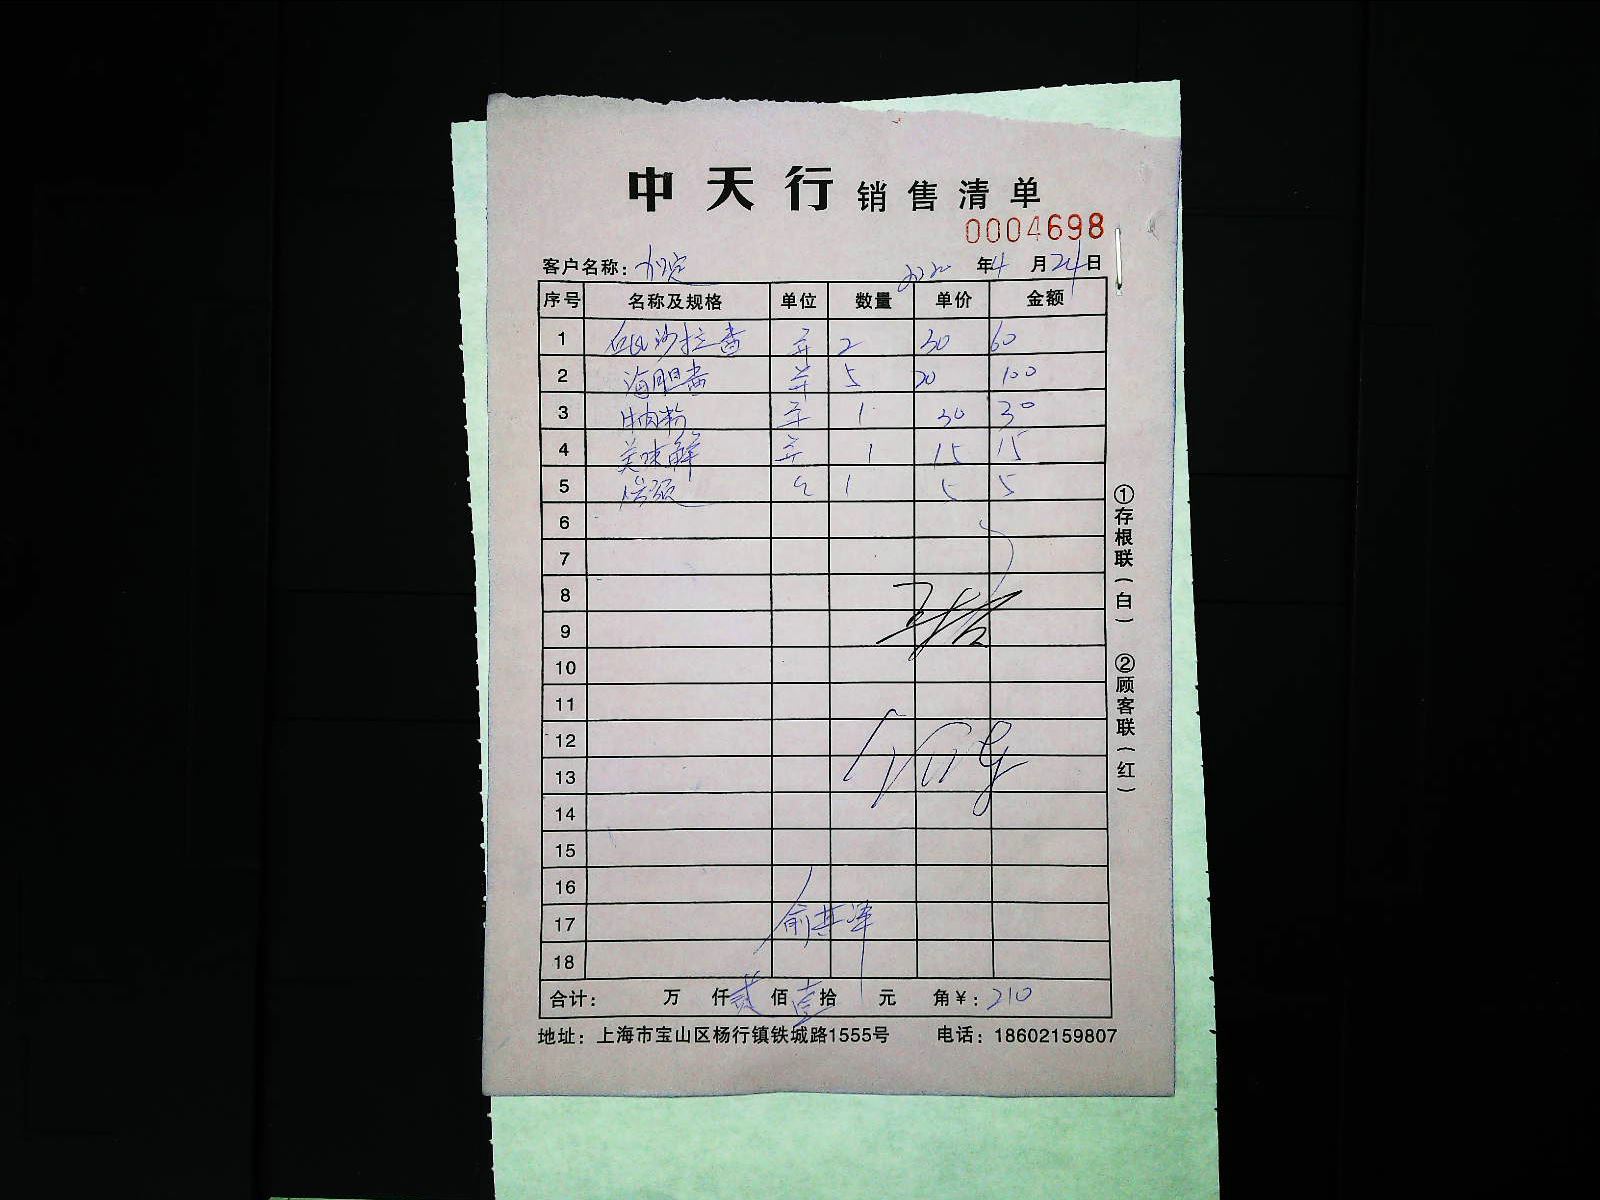 中天行 销售清单
0004698
客户名称： 年4月24日
序号 名称及规格 单位 数量 单价 金额
1 沙拉酱 2 30 60
2 海胆酱 5 20 100
3 牛肉粉 1 30 30
4 美味鲜 1 15 15
5 1 5 5
6
7
8
9
10
11
12
13
14
15
16
17
18
合计： 万 仟贰佰壹拾 元 角￥：210
地址：上海市宝山区杨行镇铁城路1555号 电话：18602159807
①存根联（白） ②顾客联（红）